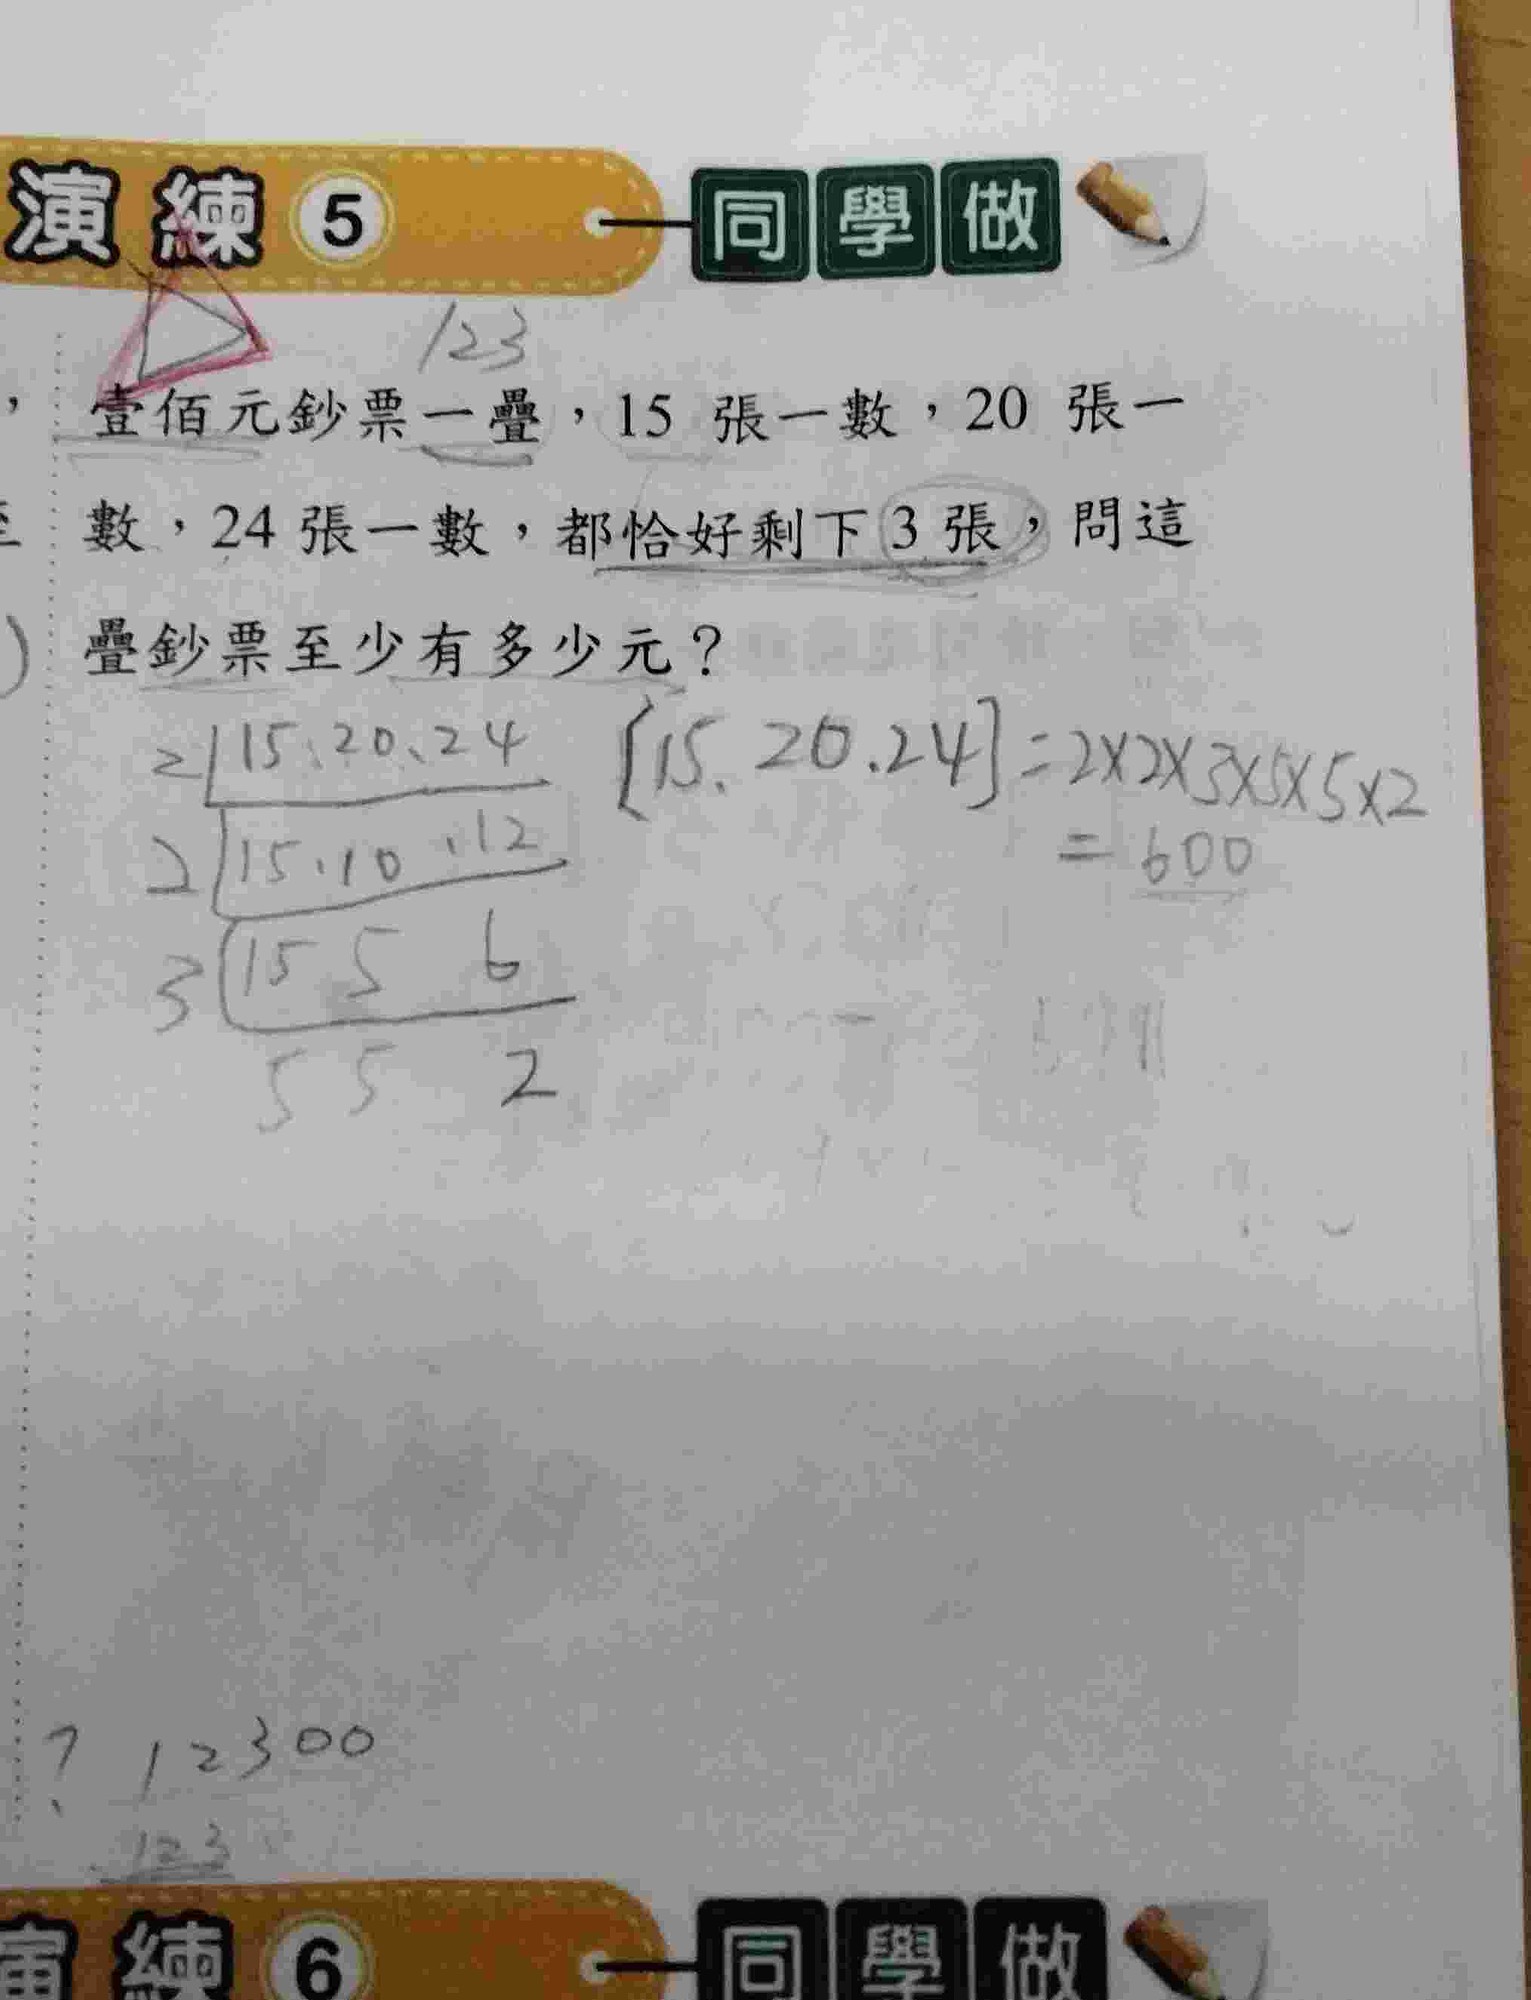 演練5 同學做
123
, 壹佰元鈔票一疊，15 張一數，20 張一
數，24 張一數，都恰好剩下 3 張，問這
) 疊鈔票至少有多少元？
2 15、20、24 [15. 20.24] = 2×2×3×5×5×2
2 15.10.12 = 600
3 15 5 6
5 5 2
? 12300
123
演練6 同學做